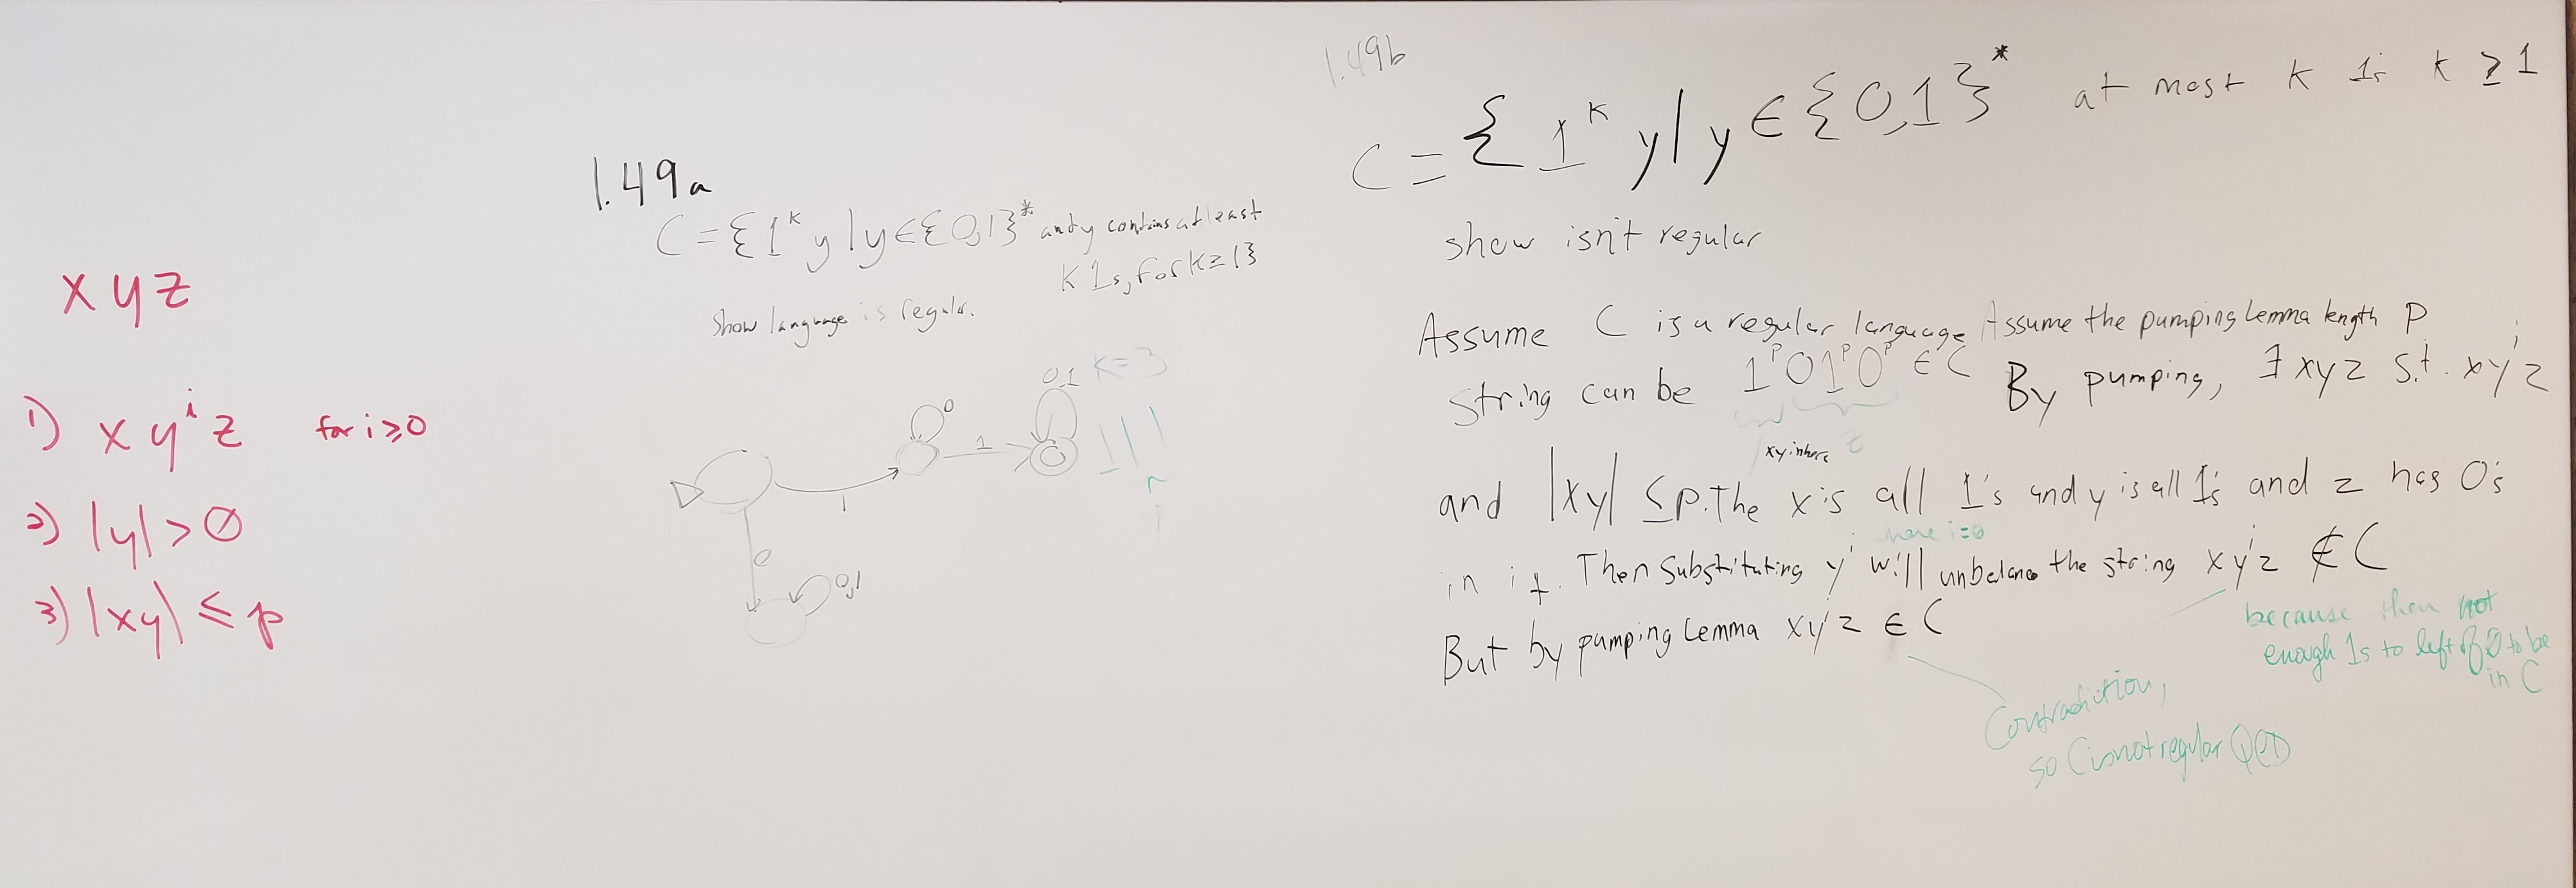 xyz
1) xy^i z for i≥0
2) |y|>0
3) |xy| ≤ p
1.49a
C = {1^k y | y ∈ {0,1}* and y contains at least
k 1s, for k≥1}
Show language is regular.
k=3
0,1
0
1
111
1
0
0,1
1.49b
C = {1^k y | y ∈ {0,1}* at most k 1s k ≥ 1
show isn't regular
Assume C is a regular language Assume the pumping lemma length p
string can be 1^p 0 1^p 0^p ∈ C By pumping, ∃ xyz s.t. xy^i z
xy in here z
and |xy| ≤ p. The x is all 1's and y is all 1's and z has 0's
where i=0
in it. Then substituting y^i will unbalance the string xy^i z ∉ C
because then not
enough 1s to left of 0 to be
in C
But by pumping lemma xy^i z ∈ C
Contradiction,
so C is not regular QED